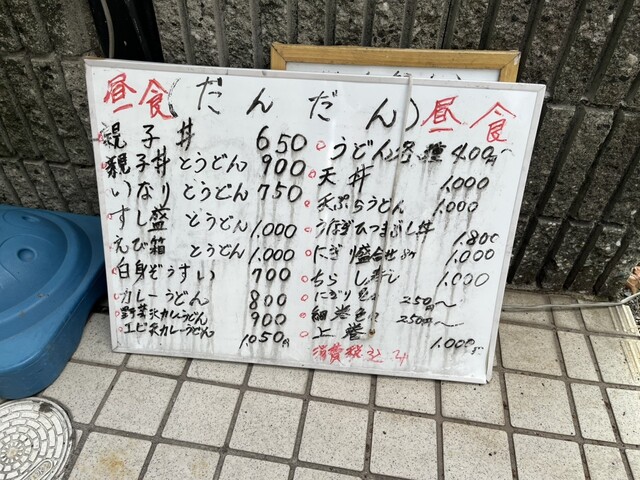 昼食(だんだん)昼食
親子丼 650
親子丼とうどん 900
いなりとうどん 750
すし盛とうどん 1,000
えび箱とうどん 1,000
白身ぞうすい 700
カレーうどん 800
野菜天カレーうどん 900
エビ天カレーうどん 1050円
うどん各種 400円~
天丼 1,000
天ぷらうどん 1,000
うなぎひつまぶし丼 1.800
にぎり盛合せ 1,000
ちらし 1,000
にぎり色々 250円~
細巻色々 250円~
上巻 1.000
消費税込み